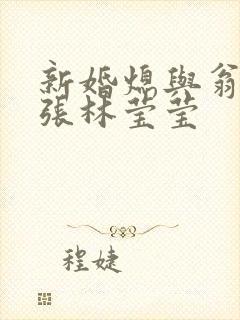 新婚熄與翁
張林莹莹
程婕